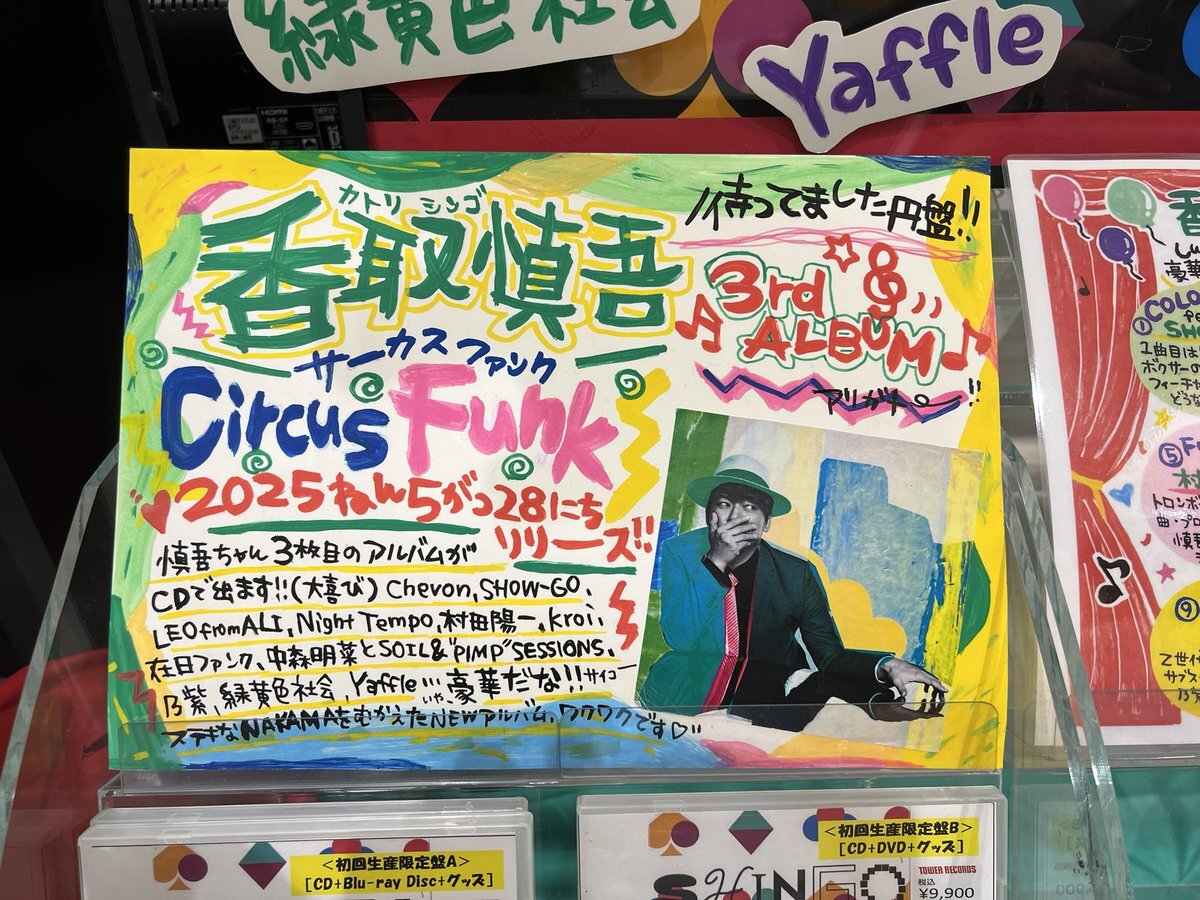 緑黄色社会
Yaffle
カトリ シンゴ
香取慎吾
待ってました円盤!!
3rd
ALBUM
アリガトー!!
サーカス ファンク
Circus Funk
2025ねん5がつ28にち
リリース!!
慎吾ちゃん3枚目のアルバムが
CDで出ます!!(大喜び) Chevon,SHOW-GO,
LEOfromALI,Night Tempo,村田陽一,kroi,
在日ファンク,中森明菜とSOIL&"PIMP"SESSIONS,
乃紫,緑黄色社会,Yaffle…いや、豪華だな!!!サイコー
ステキなNAKAMAをむかえたNEWアルバム,ワクワクです♡
<初回生産限定盤A>
[CD+Blu-ray Disc+グッズ]
<初回生産限定盤B>
[CD+DVD+グッズ]
SHINGO
TOWER RECORDS
税込
¥9,900
①
1曲目は
ボクサーの
フィーチ
どうな
⑤
村
トロンボ
慎吾
⑨
Z世代
サブス